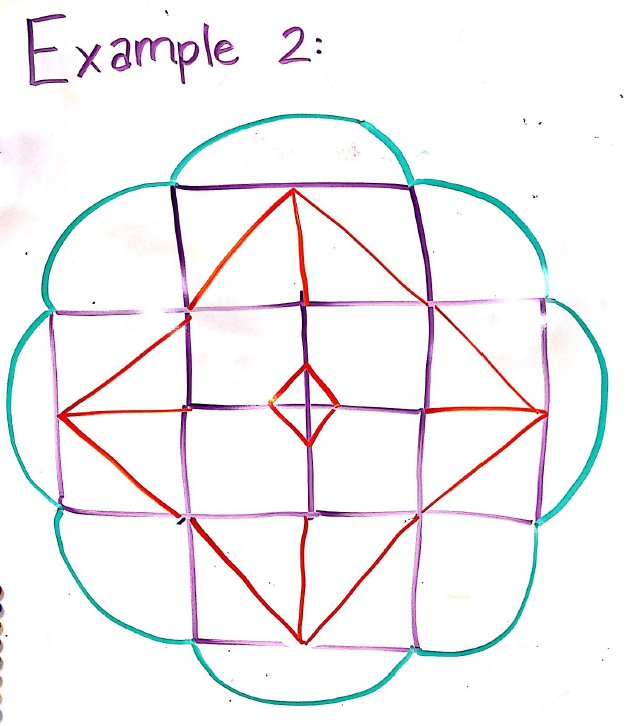 Example 2: